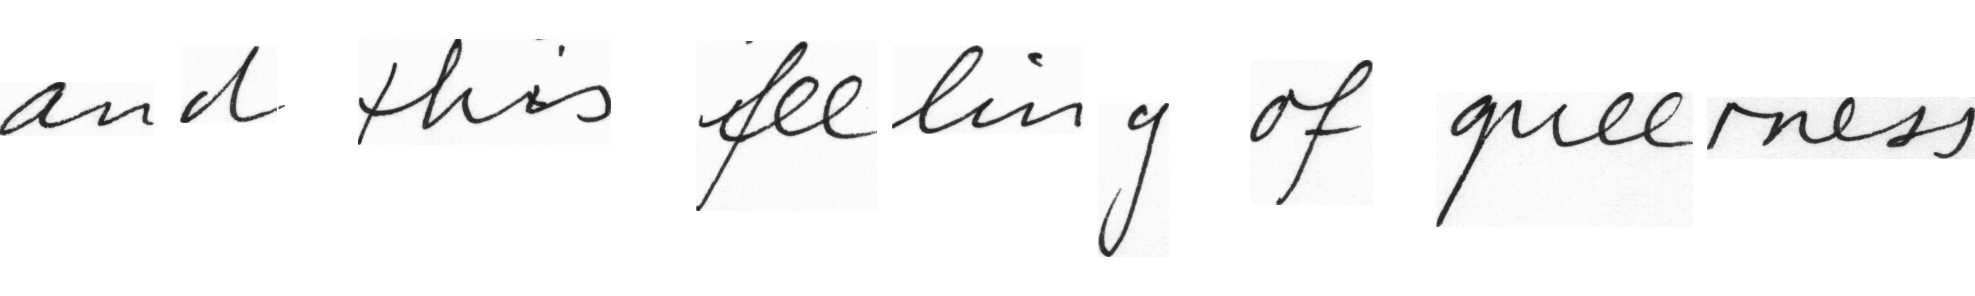 and this feeling of queerness